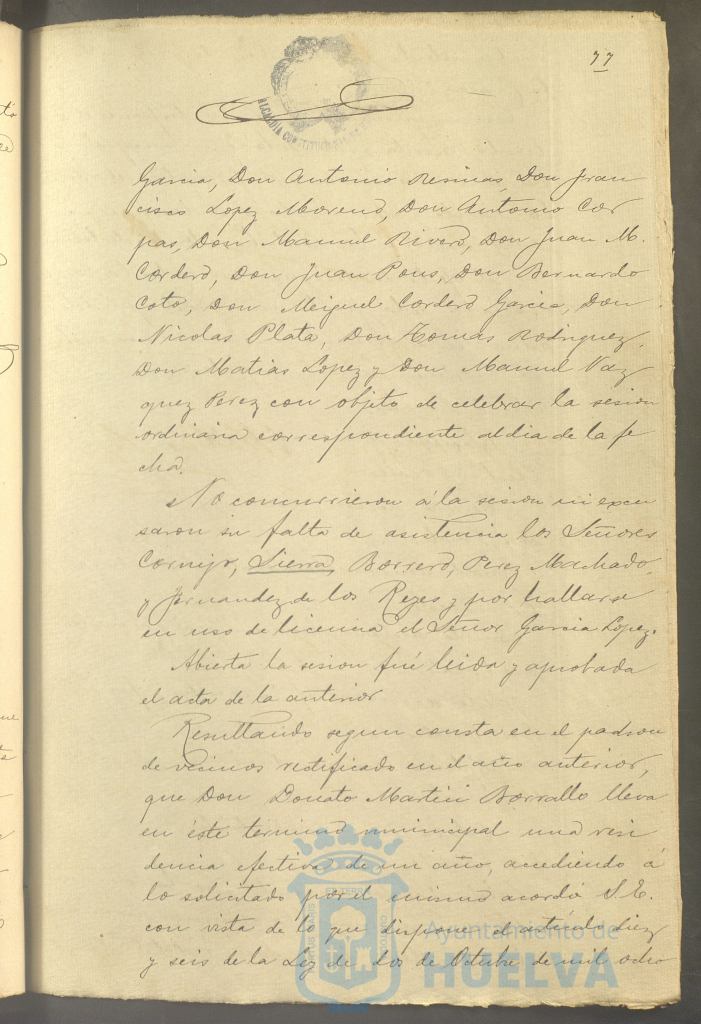 77
ALCALDIA CONSTITUCIONAL
Garcia, Don Antonio Resinas, Don Fran
cisco Lopez Moreno, Don Antonio Cor
pas, Don Manuel Rivero, Don Juan M.
Cordero, Don Juan Pons, Don Bernardo
Coto, Don Meiguel Cordero Garcia, Don
Nicolas Plata, Don Tomas Rodriguez,
Don Matias Lopez y Don Manuel Vaz
quez Perez con objeto de celebrar la sesion
ordinaria correspondiente al dia de la fe
cha.
No concurrieron á la sesion ni escu
saron su falta de asistencia los Señores
Cornejo, Sierra, Borrero, Perez Machado,
y Fernandez de los Reyes y por hallarse
en uso de licencia el Señor Garcia Lopez.
Abierta la sesion fué leida y aprobada
el acta de la anterior
Resultando segun consta en el padron
de vecinos rectificado en el año anterior,
que Don Donato Martin Borrallo lleva
en éste termino municipal una resi
dencia efectiva de un año, accediendo á
lo solicitado por el mismo acordó S.E.
con vista de lo que dispone el artículo diez
y seis de la Ley de dos de Octubre de mil ocho
Ayuntamiento de
HUELVA